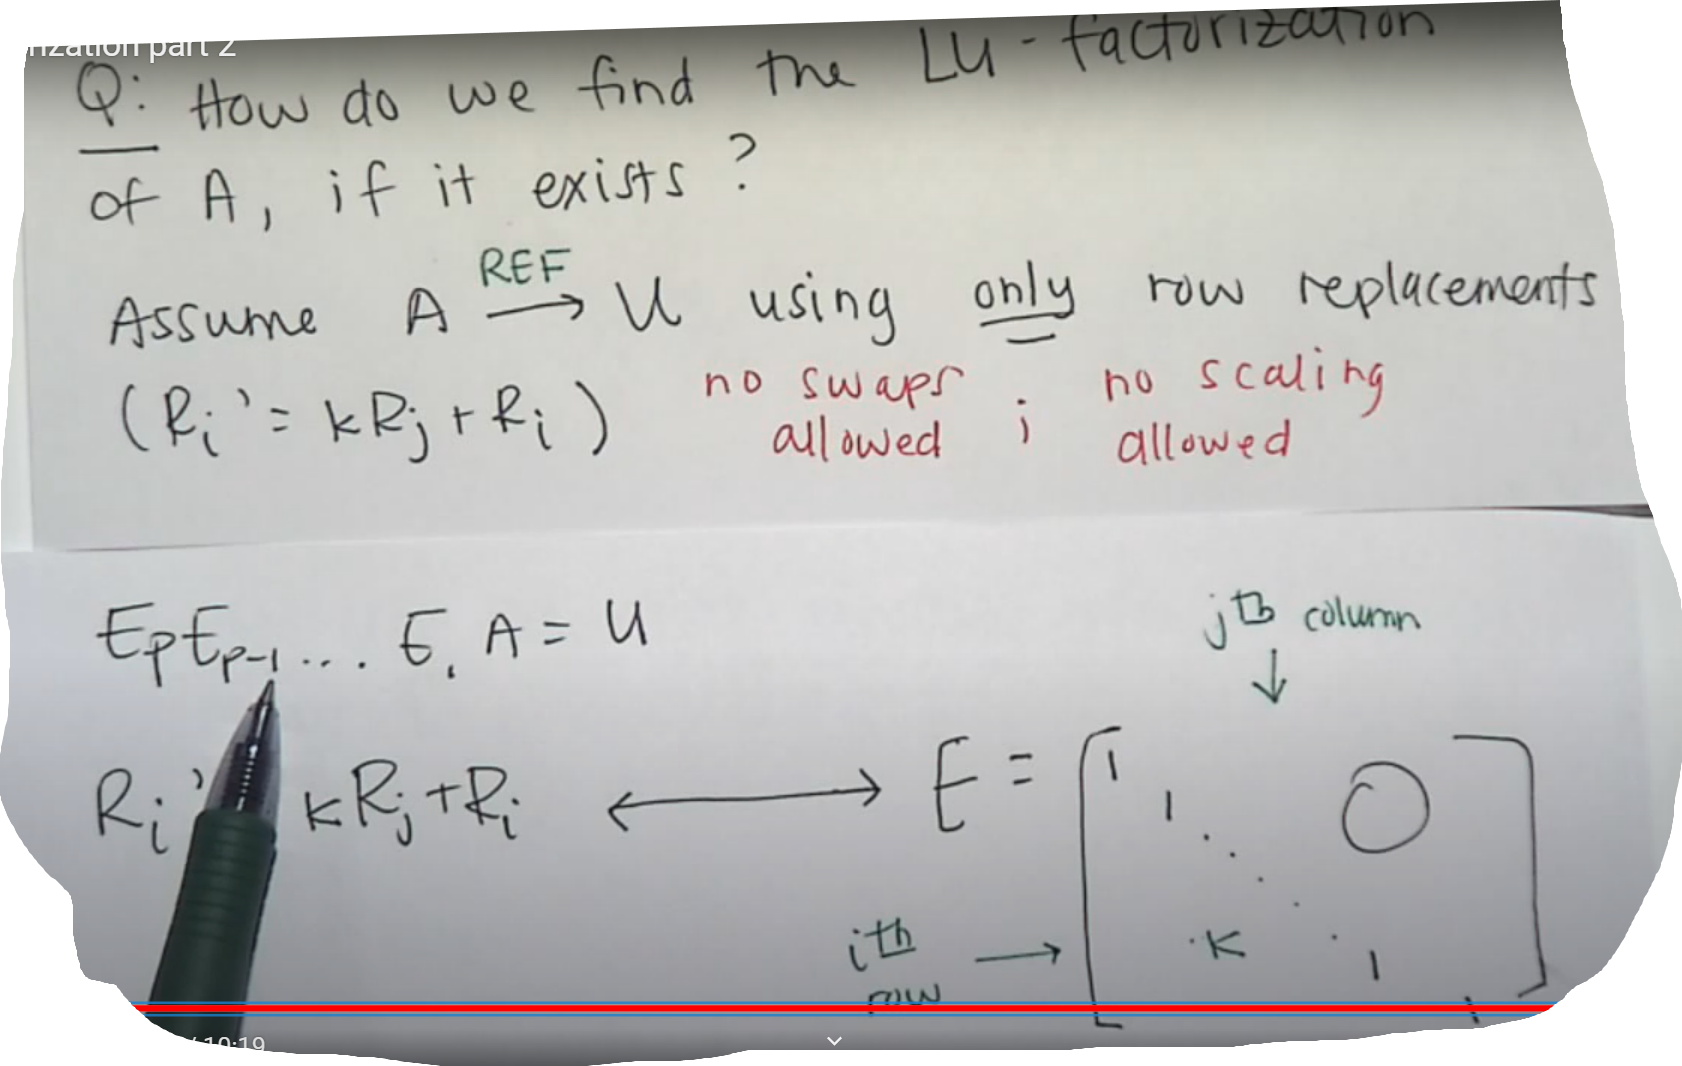 rization part 2
Q: How do we find the LU-factorization
of A, if it exists?
REF
Assume A → U using only row replacements
(Ri' = kRj + Ri) no swaps allowed ; no scaling allowed
EpEp-1 ... E1 A = U
jth column
↓
Ri' kRj + Ri ↔ E = [ 1
1 0
ith row → k 1 ]
/ 10:19